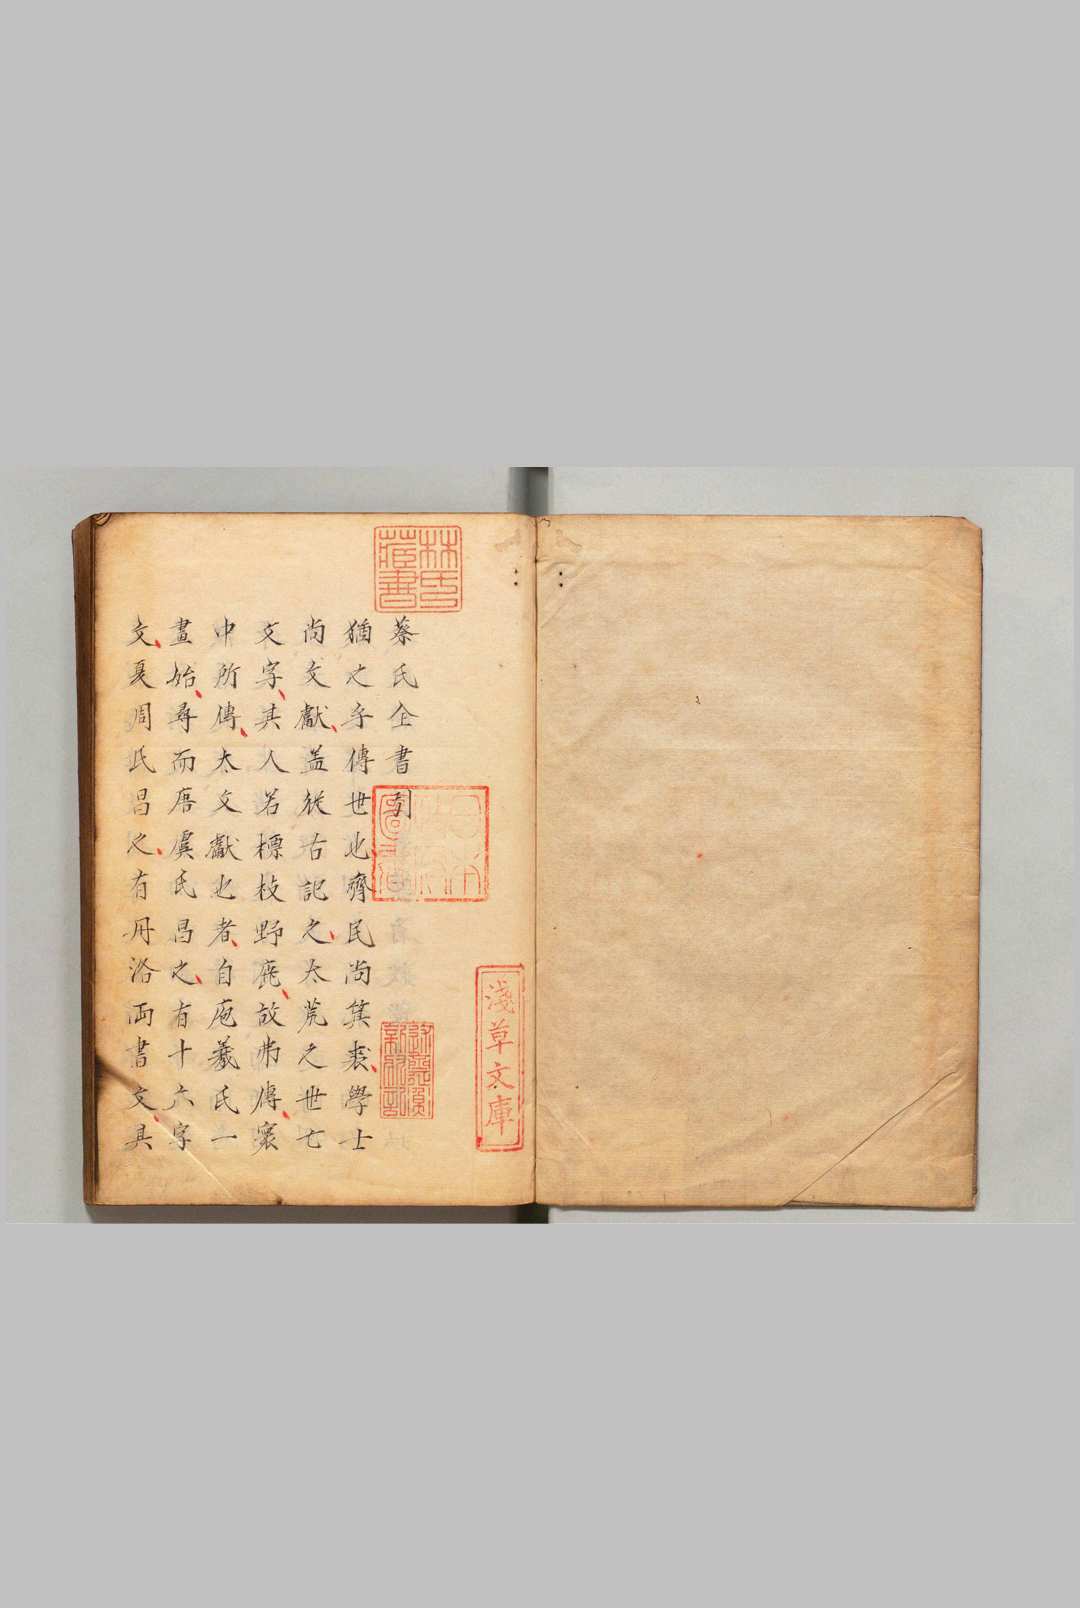 林氏藏書
淺草文庫
蔡氏全書引
猶之乎傳世也齊民尚箕裘學士
尚文獻盖從古記之太荒之世七
文字其人若標枝野鹿故弗傳寰
中所傳太文獻也者自庖羲氏一
畫始尋而唐虞氏昌之有十六字
文夏周氏昌之有丹洛両書文具